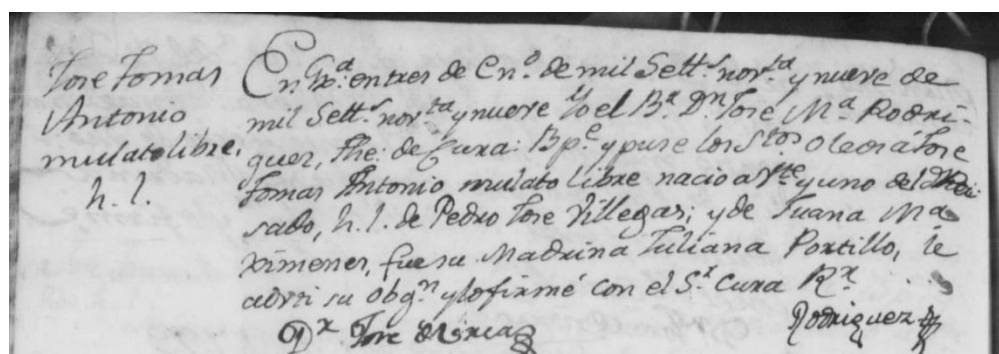 Jose Tomas
Antonio
mulato libre,
h. l.
En Gxa: en tres de Enº. de mil Settˢ. novᵗᵃ y nueve de
mil Settˢ. novᵗᵃ y nueve Yo el Bʳ. Dⁿ Jose Mª. Rodri-
guez, The: de Cura: Bpᵉ y puse los Sᵗᵒˢ oleos á Jose
Tomas Antonio mulato libre nacio a Vᵗᵉ y uno del
sado, h. l. de Pedro Jose Villegas; y de Juana Mª
Ximenes, fue su Madrina Juliana Portillo, le
adverti su obgⁿ y lo firmé con el Sʳ. Cura Rʳ.
Dʳ. Jose
Rodriguez